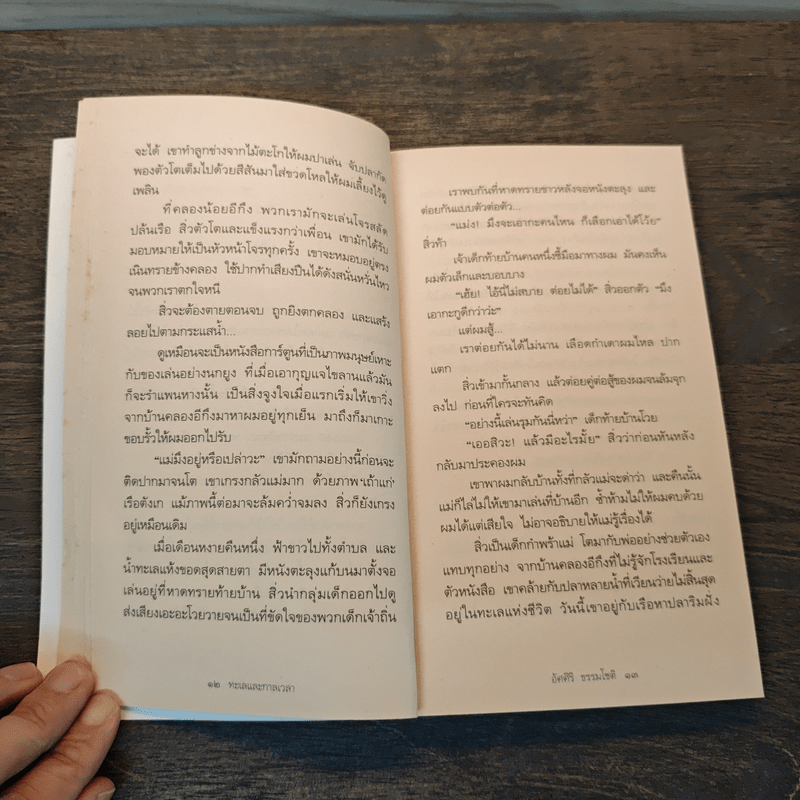 จะได้ เขาทำลูกช่างจากไม้ตะโกให้ผมปาเล่น จับปลากัด
พองตัวโตเต็มไปด้วยสีสันมาใส่ขวดโหลให้ผมเลี้ยงไว้ดู
เพลิน
ที่คลองน้อยอีกึง พวกเรามักจะเล่นโจรสลัด
ปล้นเรือ สิ่วตัวโตและแข็งแรงกว่าเพื่อน เขามักได้รับ
มอบหมายให้เป็นหัวหน้าโจรทุกครั้ง เขาจะหมอบอยู่ตรง
เนินทรายข้างคลอง ใช้ปากทำเสียงปืนได้ดังสนั่นหวั่นไหว
จนพวกเราตกใจหนี
สิ่วจะต้องตายตอนจบ ถูกยิงตกคลอง และแสร้ง
ลอยไปตามกระแสน้ำ...
ดูเหมือนจะเป็นหนังสือการ์ตูนที่เป็นภาพมนุษย์เหาะ
กับของเล่นอย่างนกยูง ที่เมื่อเอากุญแจไขลานแล้วมัน
ก็จะรำแพนหางนั้น เป็นสิ่งจูงใจเมื่อแรกเริ่มให้เขาวิ่ง
จากบ้านคลองอีกึงมาหาผมอยู่ทุกเย็น มาถึงก็มาเกาะ
ขอบรั้วให้ผมออกไปรับ
“แม่มึงอยู่หรือเปล่าวะ” เขามักถามอย่างนี้ก่อนจะ
ติดปากมาจนโต เขาเกรงกลัวแม่มาก ด้วยภาพ‘เถ้าแก่’
เรือตังเก แม้ภาพนี้ต่อมาจะล้มคว่ำจมลง สิ่วก็ยังเกรง
อยู่เหมือนเดิม
เมื่อเดือนหงายคืนหนึ่ง ฟ้าขาวไปทั้งตำบล และ
น้ำทะเลแห้งขอดสุดสายตา มีหนังตะลุงแก้บนมาตั้งจอ
เล่นอยู่ที่หาดทรายท้ายบ้าน สิ่วนำกลุ่มเด็กออกไปดู
ส่งเสียงเอะอะโวยวายจนเป็นที่ขัดใจของพวกเด็กเจ้าถิ่น
๑๒ ทะเลและกาลเวลา
เราพบกันที่หาดทรายขาวหลังจอหนังตะลุง และ
ต่อยกันแบบตัวต่อตัว...
“แม่ง! มึงจะเอากะคนไหน ก็เลือกเอาได้โว้ย”
สิ่วท้า
เจ้าเด็กท้ายบ้านคนหนึ่งชี้มือมาทางผม มันคงเห็น
ผมตัวเล็กและบอบบาง
“เฮ้ย! ไอ้นี่ไม่สบาย ต่อยไม่ได้” สิ่วออกตัว “มึง
เอากะกูดีกว่าว่ะ”
แต่ผมสู้...
เราต่อยกันได้ไม่นาน เลือดกำเดาผมไหล ปาก
แตก
สิ่วเข้ามากั้นกลาง แล้วต่อยคู่ต่อสู้ของผมจนล้มจุก
ลงไป ก่อนที่ใครจะทันคิด
“อย่างนี้เล่นรุมกันนี่หว่า” เด็กท้ายบ้านโวย
“เออสิวะ! แล้วมีอะไรมั้ย” สิ่วว่าก่อนหันหลัง
กลับมาประคองผม
เขาพาผมกลับบ้านทั้งที่กลัวแม่จะด่าว่า และคืนนั้น
แม่ก็ไล่ไม่ให้เขามาเล่นที่บ้านอีก ซ้ำห้ามไม่ให้ผมคบด้วย
ผมได้แต่เสียใจ ไม่อาจอธิบายให้แม่รู้เรื่องได้
สิ่วเป็นเด็กกำพร้าแม่ โตมากับพ่ออย่างช่วยตัวเอง
แทบทุกอย่าง จากบ้านคลองอีกึงที่ไม่รู้จักโรงเรียนและ
ตัวหนังสือ เขาคล้ายกับปลาหลายน้ำที่เวียนว่ายไม่สิ้นสุด
อยู่ในทะเลแห่งชีวิต วันนี้เขาอยู่กับเรือหาปลาริมฝั่ง
อัศศิริ ธรรมโชติ ๑๓